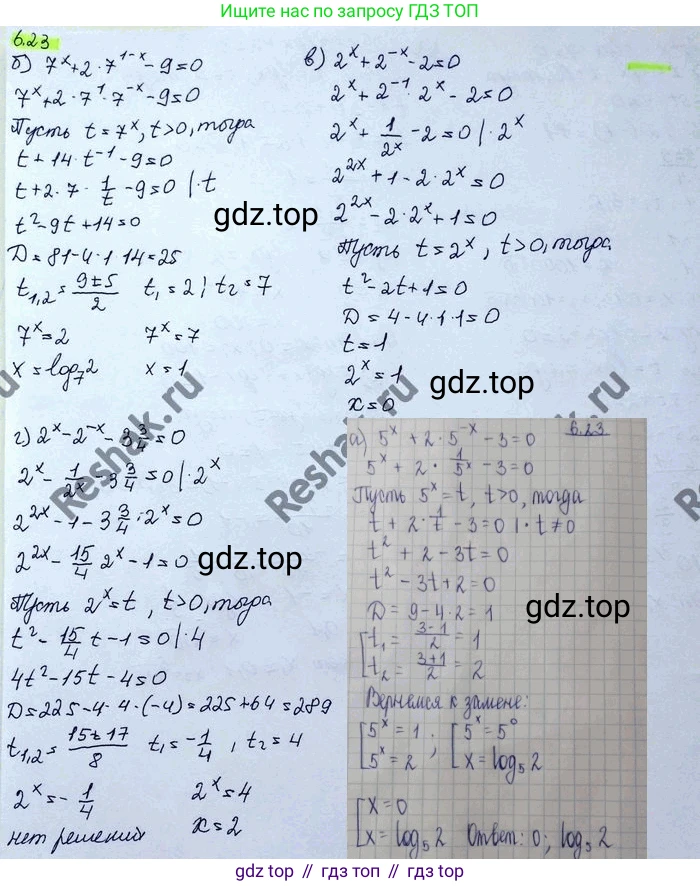 Ищите по запросу ГДЗ ТОП
6.23
б) 7^x + 2 · 7^{1-x} - 9 = 0
7^x + 2 · 7^1 · 7^{-x} - 9 = 0
Пусть t = 7^x, t > 0, тогда
t + 14 · t^{-1} - 9 = 0
t + 2 · 7 · 1/t - 9 = 0 | · t
t^2 - 9t + 14 = 0
D = 81 - 4 · 1 · 14 = 25
t_{1,2} = (9 ± 5)/2 t_1 = 2; t_2 = 7
7^x = 2 7^x = 7
x = log_7 2 x = 1
в) 2^x + 2^{-x} - 2 = 0
2^x + 2^{-1} · 2^x - 2 = 0
2^x + 1/2^x - 2 = 0 | · 2^x
2^{2x} + 1 - 2 · 2^x = 0
2^{2x} - 2 · 2^x + 1 = 0
Пусть t = 2^x, t > 0, тогда
t^2 - 2t + 1 = 0
D = 4 - 4 · 1 · 1 = 0
t = 1
2^x = 1
x = 0
г) 2^x - 2^{-x} - 3 3/4 = 0
2^x - 1/2^x - 3 3/4 = 0 | · 2^x
2^{2x} - 1 - 3 3/4 · 2^x = 0
2^{2x} - 15/4 2^x - 1 = 0
Пусть 2^x = t, t > 0, тогда
t^2 - 15/4 t - 1 = 0 | · 4
4t^2 - 15t - 4 = 0
D = 225 - 4 · 4 · (-4) = 225 + 64 = 289
t_{1,2} = (15 ± 17)/8 t_1 = -1/4, t_2 = 4
2^x = -1/4 2^x = 4
нет решений x = 2
6.23
а) 5^x + 2 · 5^{-x} - 3 = 0
5^x + 2 · 1/5^x - 3 = 0
Пусть 5^x = t, t > 0, тогда
t + 2 · 1/t - 3 = 0 | · t ≠ 0
t^2 + 2 - 3t = 0
t^2 - 3t + 2 = 0
D = 9 - 4 · 2 = 1
[t_1 = (3-1)/2 = 1
t_2 = (3+1)/2 = 2
Вернемся к замене:
[5^x = 1; [5^x = 5^0
5^x = 2 x = log_5 2
[x = 0
x = log_5 2 Ответ: 0; log_5 2
gdz.top
gdz.top
gdz.top
gdz.top
Reshak.ru
Reshak.ru
gdz.top // gdz.top // gdz.top